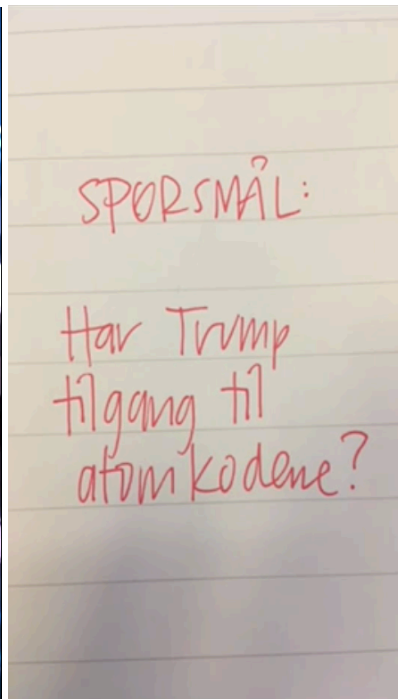 SPØRSMÅL:
Har Trump
tilgang til
atomkodene?